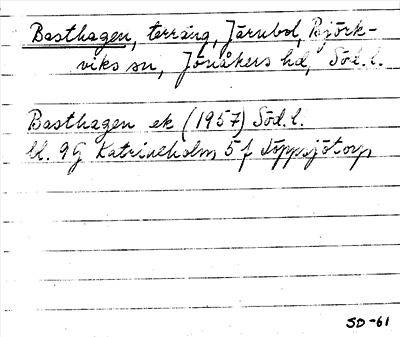 Basthagen, terräng, Järnbol, Björk-
viks sn, Jönåkers hd, Söd. l.
Basthagen ek (1957) Söd. l.
bl. 9G Katrineholm, 5f Töppsjötorp
SD-61